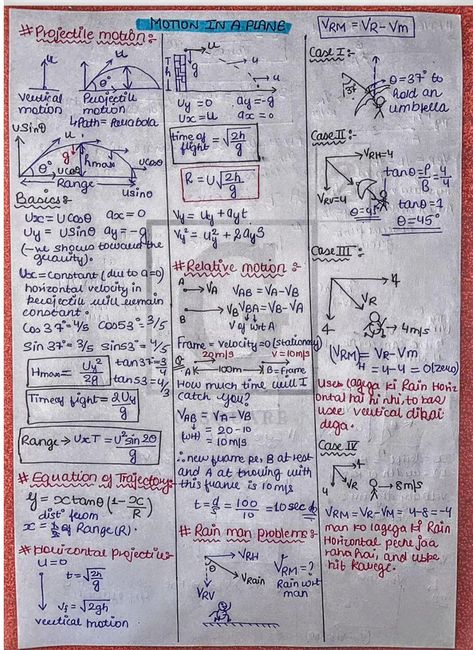 MOTION IN A PLANE
#Projectile motion:-
u
u
vertical motion
Projectile motion
↳Path = Parabola
usinθ
u
g
hmax
ucosθ
θ°
ucosθ
Range
usinθ
Basics:-
Ux = Ucosθ ax = 0
Uy = Usinθ ay = -g
(-ve shows toward the
gravity).
Ux = constant (due to a=0)
horizontal velocity in
projectile will remain
constant.
Cos37° = 4/5 Cos53° = 3/5
Sin 37° = 3/5 Sin53° = 4/5
Hmax = Uy²/2g
tan37 = 3/4
tan53 = 4/3
Time of flight = 2Uy/g
Range → Ux×T = U²sin2θ/g
#Equation of Trajectory
y = xtanθ(1-x/R)
dist° from
of Range(R).
#Horizontal projectile-
u=0
t = √2h/g
vf = √2gh
vertical motion
u
h
g
u
Uy = 0 ay = -g
Ux = u ax = 0
time of flight = √2h/g
R = U√2h/g
Vy = Uy + ayt
Vy² = Uy² + 2ays
#Relative motion:-
A → VA VAB = VA-VB
B → VB VBA = VB-VA
V of wrt A
Frame = Velocity=0(stationary)
20m/s V=10m/s
A 100m B=Frame
How much time will I
catch you?
VAB = VA-VB
(wrt) = 20-10
= 10m/s
∴ new frame pe, B at rest
and A at moving with
this frame is 10m/s
t = d/s = 100/10 = 10 sec
#Rain man problems:-
VRH
θ
VRain
VRV
VRM = ?
Rain wrt
man
VRM = VR-Vm
Case I:-
37°
θ = 37° to
hold an
umbrella
Case II:-
VRH=4
VRV=4
θ=45°
tanθ = P/B = 4/4
tanθ = 1
θ = 45°
Case III:-
4
VR
4
4m/s
(VRM)H = VR-Vm
= 4-4 = 0(zero)
Usee lagega ki Rain Horiz
ontal hai hi nhi, to bas
usee vertical dikai
dega.
Case IV
4
VR
4
8m/s
VRM = VR-Vm = 4-8 = -4
man ko lagega ki Rain
Horizontal peche jaa
raha hai, and uske
hit karege.